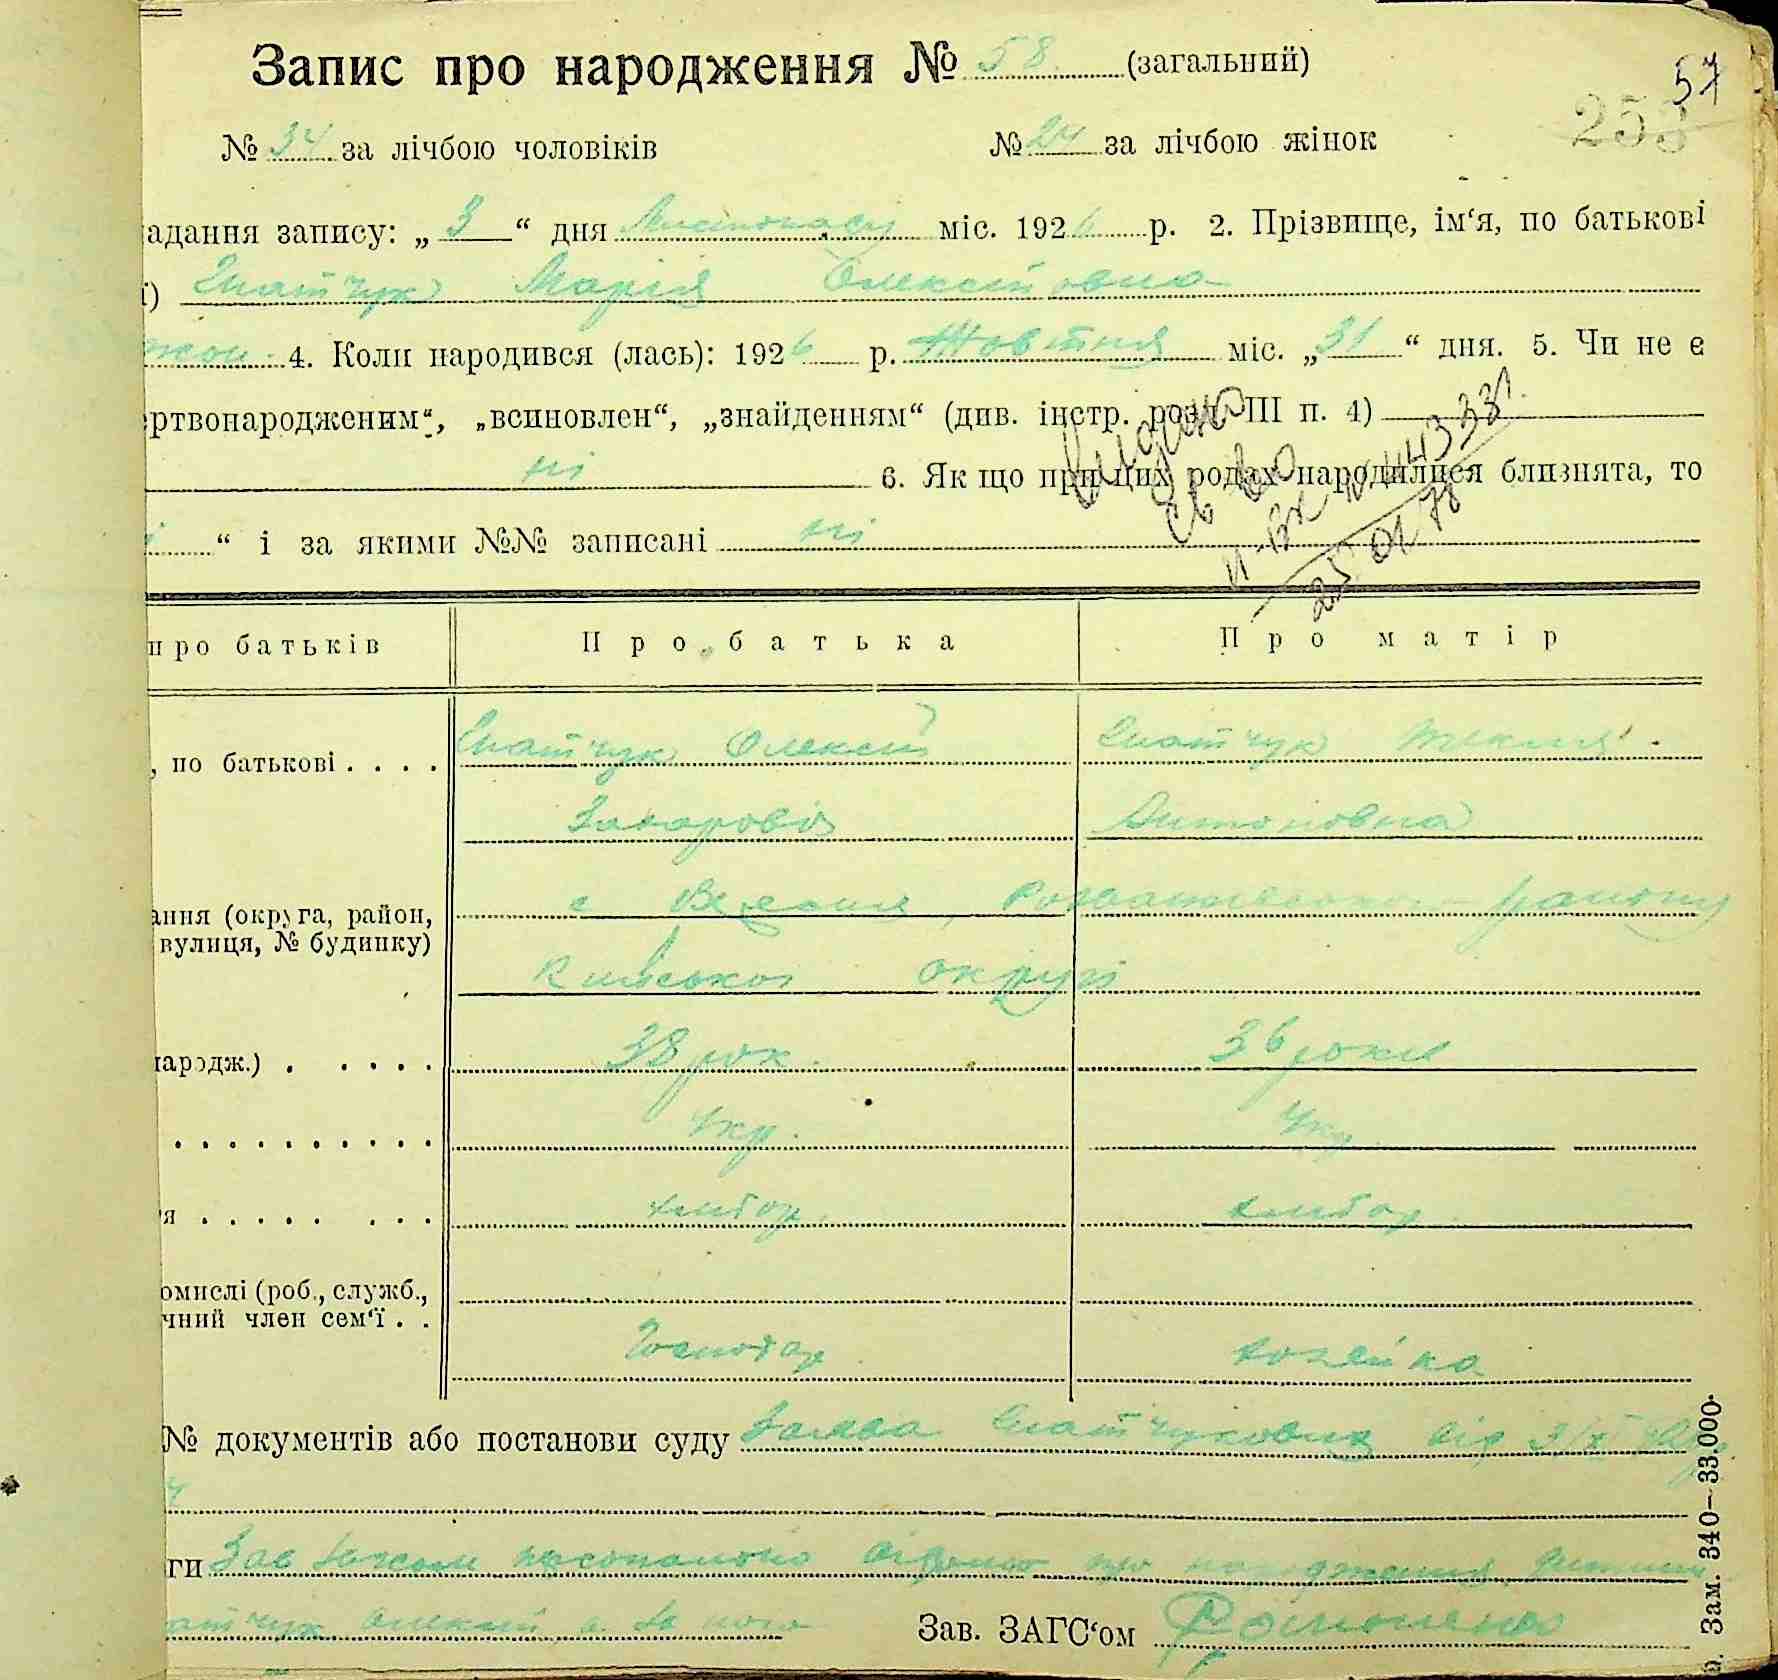 Запис про народження № 58 (загальний)
57
253
№ 34 за лічбою чоловіків № 24 за лічбою жінок
адання запису: „ 3 “ дня Листопаду міс. 1926 р. 2. Прізвище, ім‘я, по батькові
ї) Гнатчук Марія Олексіївна
жон. 4. Коли народився (лась): 1926 р. Жовтня міс. „31“ дня. 5. Чи не є
ртвонародженим“, „всиновлен“, „знайденням“ (див. інстр. розд. III п. 4)
ні 6. Як що при цих родах народилися близнята, то
“ і за якими №№ записані ні
Видано
св во
25 01 78
про батьків Про батька Про матір
, по батькові . . . . Гнатчук Олексій Гнатчук Текля
Захарові Антоновна
ання (округа, район, с Розважівського району
вулиця, № будинку)
Київської округи
народж.) . . . . . 38 рок. 36 роки
. . . . . . . . . . Укр. Укр
я . . . . . . . . хлибор. хлибор.
омислі (роб., служб.,
чний член сем‘ї . .
Господар хозяйка
№ документів або постанови суду Заява Гнатчукова від 3/XI
ги про народження дитини
атчук Олексій Зав. ЗАГС‘ом
Зам. 340—33.000.